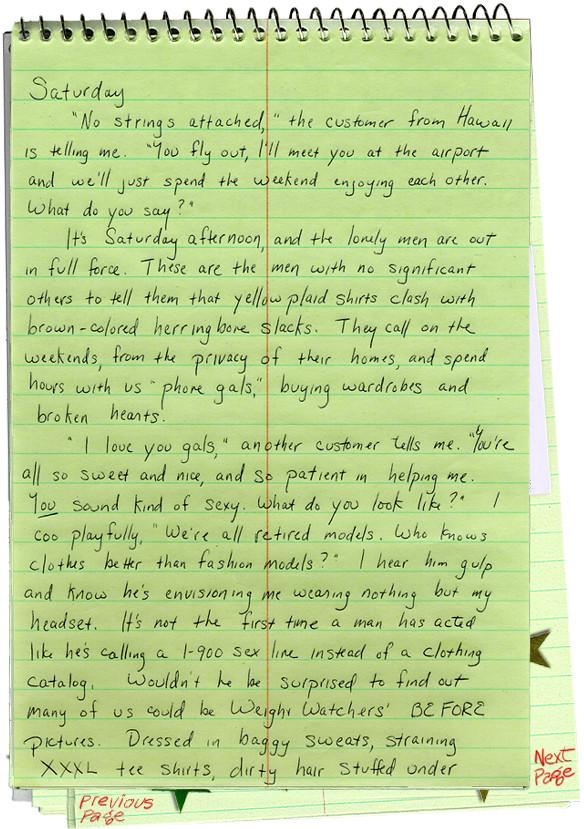 Saturday
"No strings attached," the customer from Hawaii
is telling me. "You fly out, I'll meet you at the airport
and we'll just spend the weekend enjoying each other.
What do you say?"
It's Saturday afternoon, and the lonely men are out
in full force. These are the men with no significant
others to tell them that yellow plaid shirts clash with
brown-colored herringbone slacks. They call on the
weekends, from the privacy of their homes, and spend
hours with us "phone gals," buying wardrobes and
broken hearts.
"I love you gals," another customer tells me. "You're
all so sweet and nice, and so patient in helping me.
You sound kind of sexy. What do you look like?" I
coo playfully, "We're all retired models. Who knows
clothes better than fashion models?" I hear him gulp
and know he's envisioning me wearing nothing but my
headset. It's not the first time a man has acted
like he's calling a 1-900 sex line instead of a clothing
catalog. Wouldn't he be surprised to find out
many of us could be Weight Watchers' BEFORE
pictures. Dressed in baggy sweats, straining
XXXL tee shirts, dirty hair stuffed under
Next
Page
Previous
Page